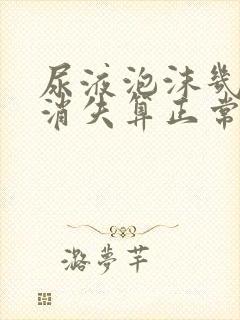 尿液泡沫幾
消失算正常
潞夢芊